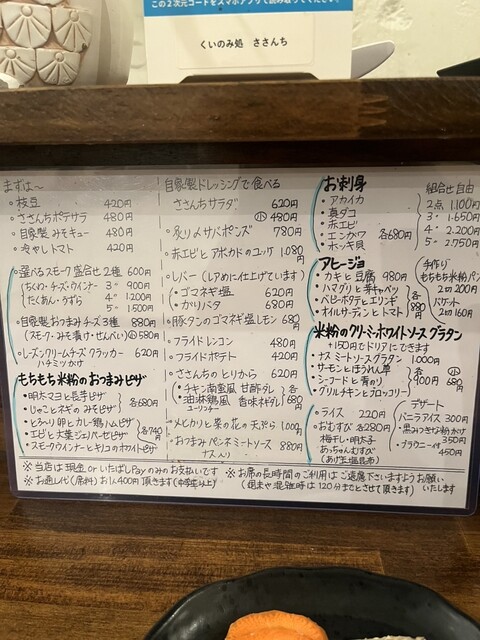 この2次元コードをスマホアプリで読み取ってください。
くいのみ処 ささんち
まずは〜
・枝豆 420円
・ささんちポテサラ 480円
・自家製みそキュー 480円
・冷やしトマト 420円
・選べるスモーク盛合せ2種 600円
(ちくわ・チーズ・ウインナー 3〃 900円
たくあん・うずら) 4〃 1200円
5〃 1500円
・自家製おつまみチーズ3種 880円
(スモーク・みそ漬け・せんべい) ㊙小 580円
・レーズンクリームチーズクラッカー 620円
ハチミツがけ
もちもち米粉のおつまみピザ
・明太マヨと長芋ピザ
・じゃことネギのみそピザ 各680円
・とろ〜り卵とカレ鶏ハムピザ
・エビと大葉ジェノベーゼピザ 各740円
・スモークウインナーとチョリコのホワイトピザ
自家製ドレッシングで食べる
ささんちサラダ 620円
小 480円
・炙り〆サバポンズ 780円
・赤エビとアボカドのユッケ 1.080円
・レバー(レアめに仕上げています)
・ゴマネギ塩 620円
・カリバタ 680円
・豚タンのゴマネギ塩レモン 680円
・フライドレンコン 480円
・フライドポテト 420円
・ささんちのとりから 620円
・チキン南蛮風 甘酢ダレ 各
・油淋鶏風 香味ネギダレ 680円
ユーリンチー
・メヒカリと菜の花の天ぷら 1000円
・おつまみペンネミートソース 880円
ナス入り
お刺身 組合せ自由
・アカイカ 2点 1.100円
・真ダコ 3〃 1.650円
・赤エビ 各680円 4〃 2.200円
・エンガワ 5〃 2.750円
・ホッキ貝
アヒージョ
・カキと豆腐 980円
・ハマグリと芽キャベツ 各
・ベビーホタテとエリンギ 880円
・オイルサーディンとトマト
手作りもちもち米粉パン 2コ 200円
バゲット 2コ 160円
米粉のクリーミーホワイトソースグラタン
+150円でドリアにできます
・ナスミートソースグラタン 1000円
・サーモンとほうれん草 各 小
・シーフードと青のり 900円 680円
・グリルチキンとブロッコリー
・ライス 220円
・おむすび 各280円
梅干し・明太子
あっちゃんむすび
(あげ玉塩昆布)
デザート
バニラアイス 300円
・黒みつきな粉かけ 350円
・ブラウニー付 450円
※当店は現金orいたばしPayのみのお支払いです
※お通し代(席料)お1人400円頂きます(中学生以上)
※お席の長時間のご利用はご遠慮下さいますようお願い
(週末や混雑時は120分までとさせて頂きます) いたします